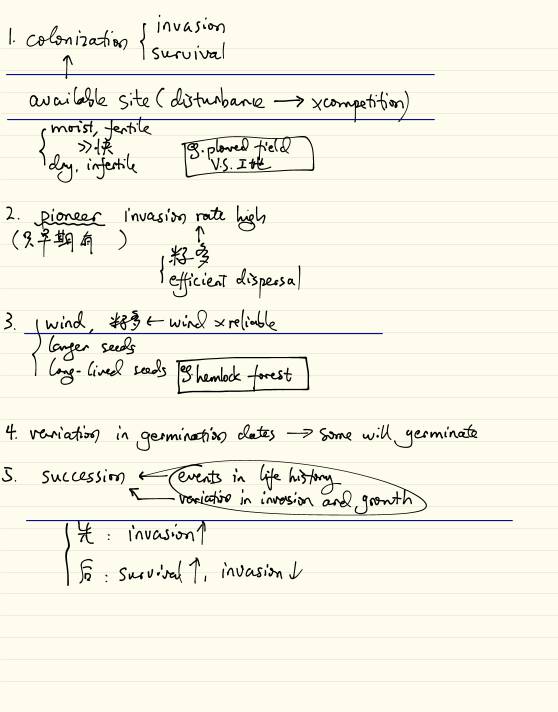 1. colonization { invasion
survival
↑
available site (disturbance → x competition)
{ moist, fertile
≫快
dry, infertile
eg. plowed field
V.S. 工地
2. pioneer invasion rate high
(只早期有 )
↑
{ 籽多
efficient dispersal
3. { wind, 籽多 ← wind x reliable
larger seeds
long-lived seeds eg. hemlock forest
4. variation in germination dates → some will germinate
5. succession ← events in life history
← variation in invasion and growth
{ 先: invasion ↑
后: survival ↑, invasion ↓